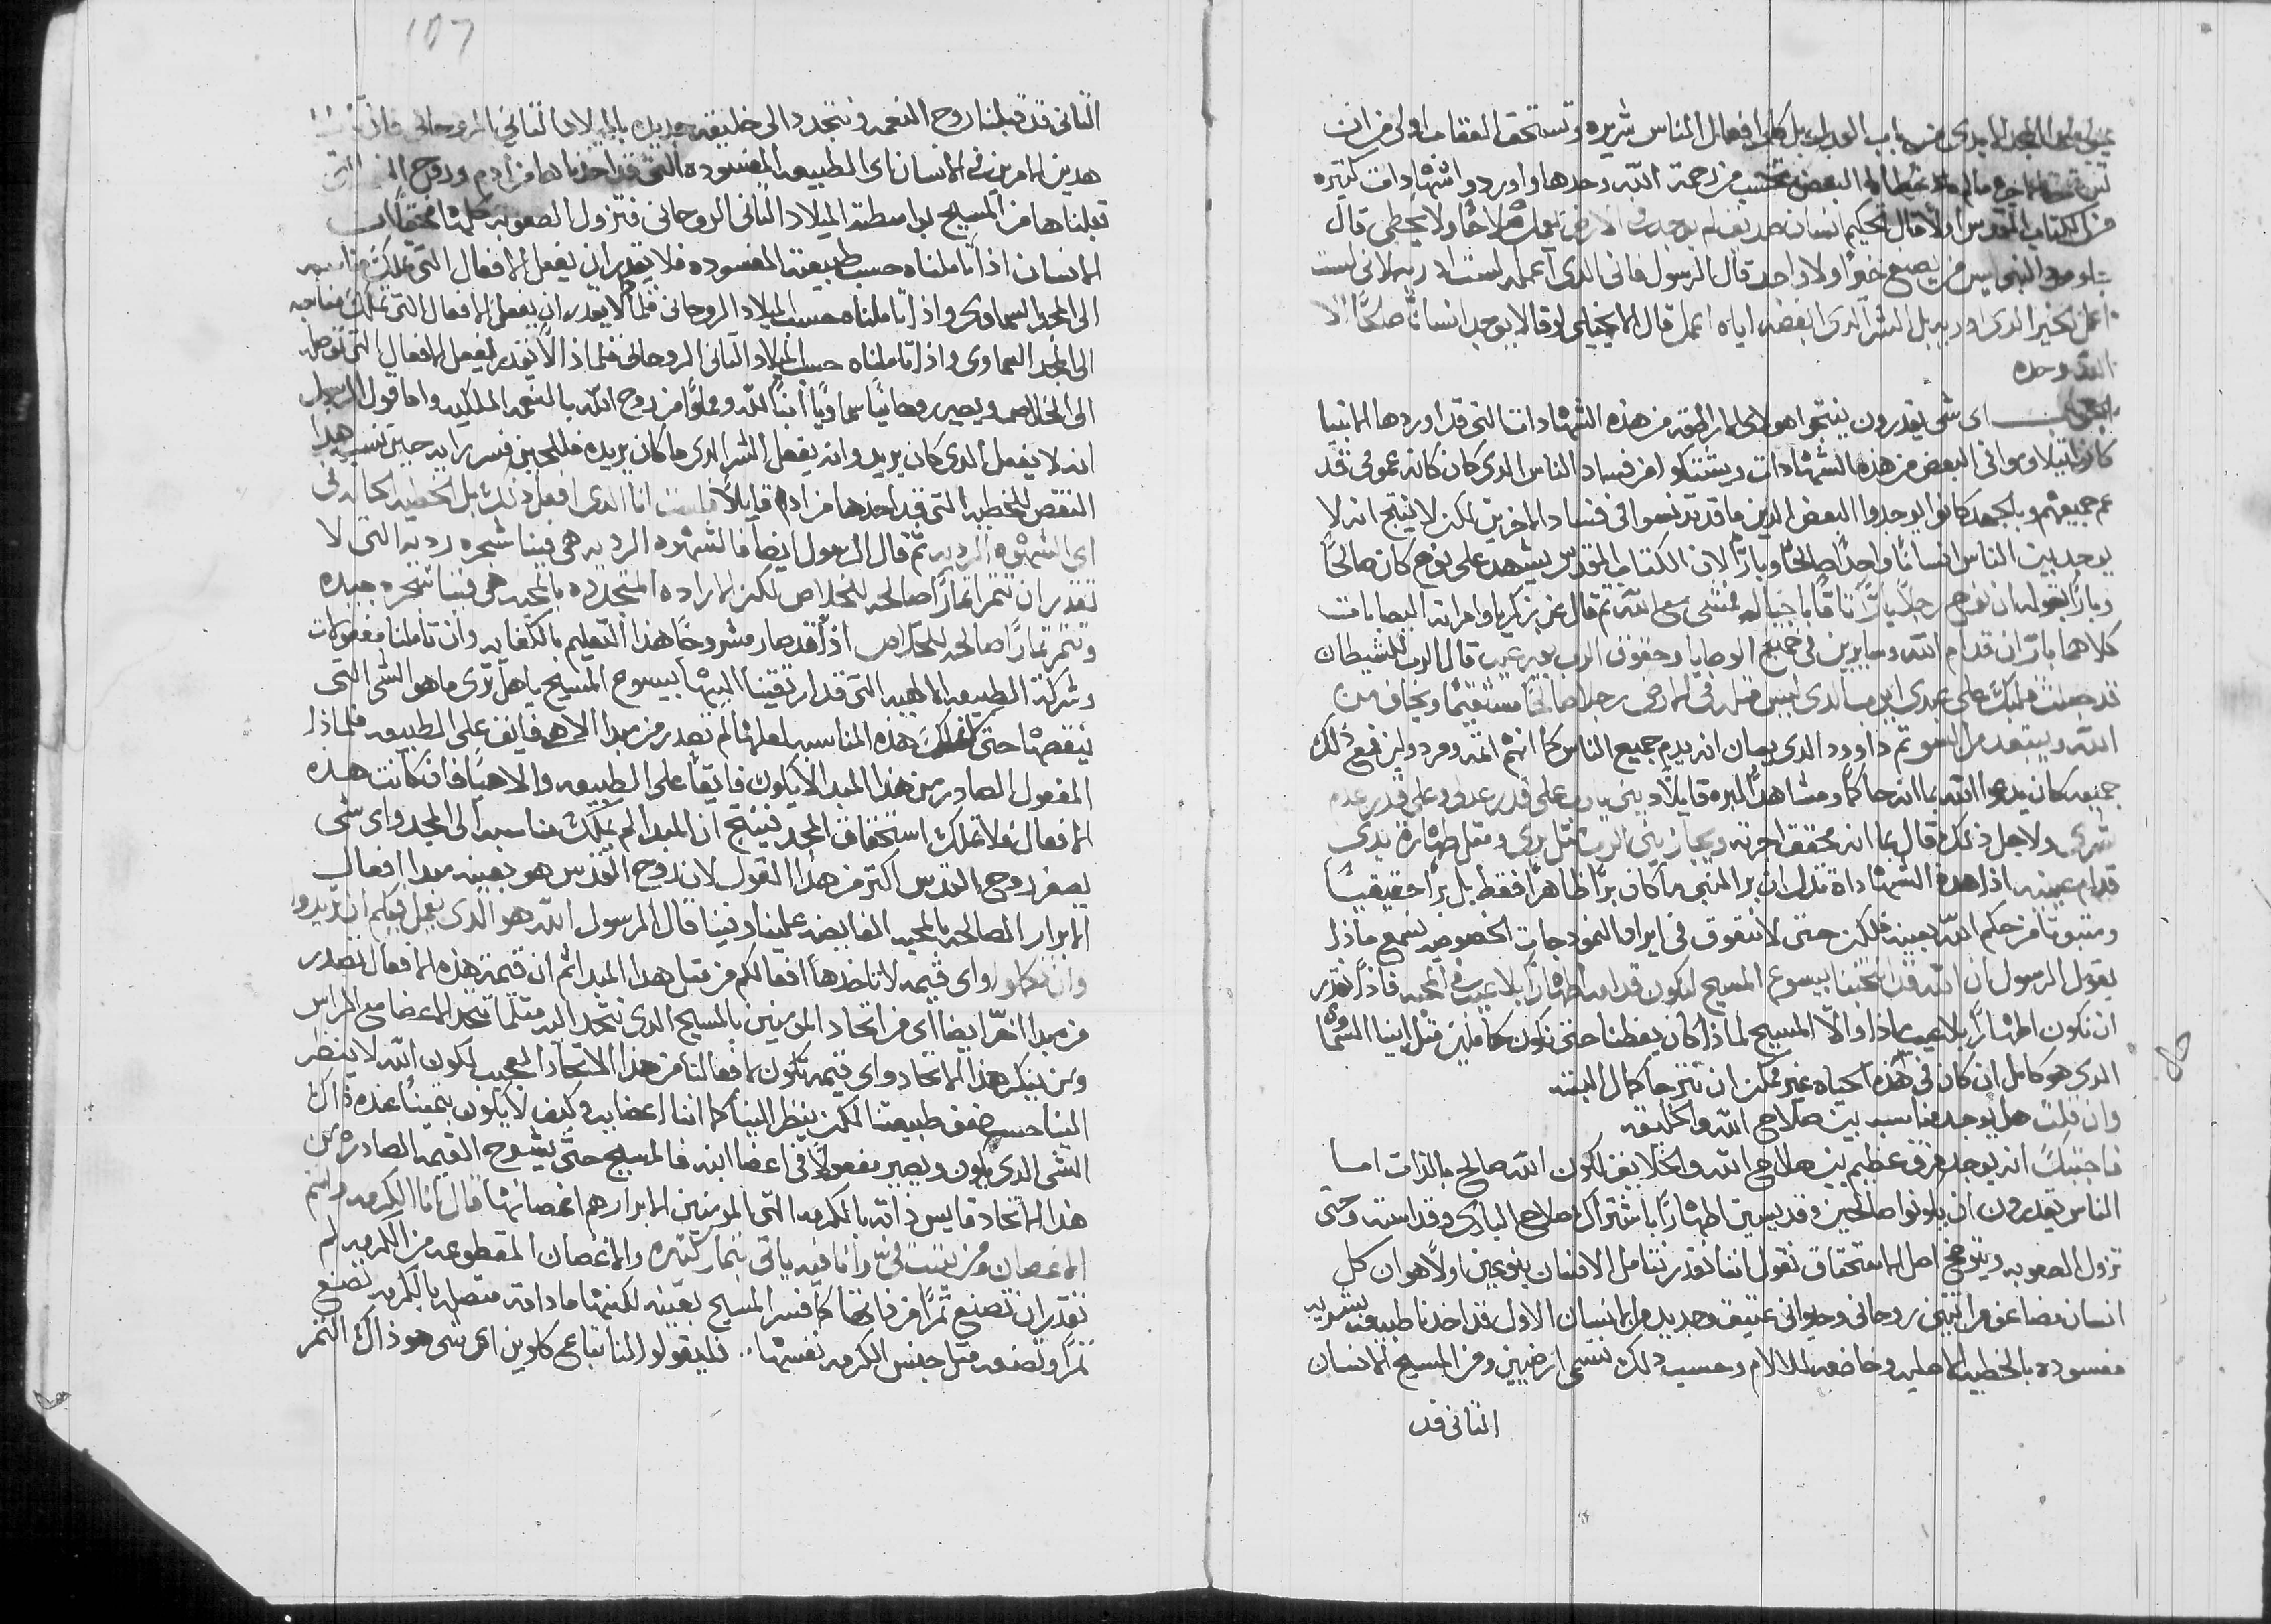 من باب العدل بل كل افعال الناس شريره وتستحق العقاب اولى من ان
البعض تحتسب من رحمة الله وحدها واوردوا شهادات كثيره
من الكتاب المقدس اولا قال الحكيم انسان صديق لم يوجد في الارض يعمل صلاحا ولا يخطى قال
النبى ليس من يصنع خيرا ولا واحد قال الرسول فانى الدى اعمله لست ادريه لانى لست
اعمل الخير الدى اوريد بل الشر الدى ابغضه اياه اعمل قال الانجيلى لوقا لا يوجد انسانا صالحا الا
الله وحده
الجواب اى شى يقدرون ينتجوا هولاى الهراطقه من هذه الشهادات التى قد اوردها الانبيا
كانوا يتلاوموا فى البعض من هذه الشهادات ويشتكوا من فساد الناس الدى كان كانه عمومى قد
عم جميعهم وبالجهد كانوا يوجدوا البعض الدين ما قد تدنسوا فى فساد الاخرين لكن لا ينتج انه لا
يوجد بين الناس انسانا واحدا صالحا وبارا لان الكتاب المقدس يشهد على نوح كان صالحا
وبارا بقوله ان نوح رجلا بارا تاقا باجياله مشى مع الله ثم قال عن زكريا وامراته اليصابات
كلاهما باران قدام الله وسايرين فى جميع الوصايا وحقوق الرب بغير عيب قال الرب للشيطان
قد جعلت قلبك على عبدى ايوب الدى ليس مثله فى الارض رجلا صالحا مستقيما ويخاف من
الله ويبتعد من السو ثم داوود الدى بان انه يدم جميع الناس كانهم اثمه ومردولين فمع ذلك
جميعه كان يدعوا الله بما انه حاكما ومشاهدا لبره قايلا دينى يارب على قدر عدلى وعلى قدر عدم
شرى ولاجل ذلك قال بما انه محقق اجرته ويجازينى الرب مثل برى ومثل طهارة يدى
قدام عينيه اذا هذه الشهاداة تدل ان بر المنبى ما كان برا ظاهرا فقط بل برا حقيقيا
ومثبوتا من حكم الله بعينه فلكن حتى لا نتعوق فى ايراد النمودجات الخصوصيه نسمع ماذا
يقول الرسول ان الله قد انتخبنا بيسوع المسيح لنكون قدامه اطهارا بلا عيب فى المحبه فاذا نقدر
ان نكون اطهارا بلا عيب اذا والا المسيح لماذا كان يعظنا حتى نكون كاملين مثل ابينا السماى
الدى هو كامل ان كان فى هذه الحياه غير ممكن ان نترجا كمال البته
وان قلت هل يوجد مناسبه بين صلاح الله والخليقه
فاجبتك انه يوجد فرق عظيم بين صلاح الله والخلايق لكون الله صالح بالذات اما
الناس يقدرون ان يكونوا صالحين وقديسين اطهارا باشتراك صلاح البارى وقداسته وحتى
تزول الصعوبه ويتوضح اصل الاستحقاق نقول اننا نقدر نتامل الانسان بنوعين اولا هو ان كل
انسان مضاعف مراتبتين روحانى وحيوانى عتيق وجديد من الانسان الاول قد اخدنا طبيعه بشريه
مفسوده بالخطيه الاصليه وخاضعه للالام وحسب ذلك نسمى ارضيين ومن المسيح الانسان
الثانى قد
107
الثانى قد قبلنا روح النعمه ونتجدد الى خليقه جديده بالميلاد الثانى الروحانى فان
هدين الامرين فى الانسان اى الطبيعه المفسوده التى قد اخدناها من ادم وروح التى
تقبلناها من المسيح بواسطة الميلاد الثانى الروحانى فتزول الصعوبه كلها
الانسان اذا تاملناه حسب طبيعته المفسوده فلا يقدر ان يفعل الافعال التى تملك مناسبه
الى المجد السماوى واذا تاملناه حسب الميلاد الروحانى فلماذا لا يقدر ان يفعل الافعال التى تملك مناسبه
الى المجد السماوى واذا تاملناه حسب الميلاد الثانى الروحانى فلماذا لا يقدر يفعل الافعال التى توصله
الى الخلاص ويصير روحانيا سماويا ابنا لله ومملوا من روح الله بالنعمه الملكيه واما قول الرسول
انه لا يفعل الدى كان يريد وانه يفعل الشر الدى ما كان يريده فللحين فسر رايه حين نسب هدا
النقص للخطيه التى قد اخدها من ادم قايلا فلست انا الدى افعل ذلك بل الخطيه الحاله فى
اى الشهوه الرديه ثم قال الرسول ايضا فالشهوه الرديه هى فينا شجره رديه التى لا
تقدر ان تتمر اثمارا صالحه للخلاص لكن الاراده المتجدده بالمحبه هى فينا شجره جيده
وتتمر ثمارا صالحه للخلاص اذا قد صار مشروحا هذا التعليم بالكفايه وان تاملنا مفعولات
وشركة الطبيعه الالهيه التى قد ارتقينا اليها بيسوع المسيح ياهل ترى ما هو الشى التى
ينقصها حتى تملك هذه المناسبه لعلها لم تصدر من مبدا الاهى فايق على الطبيعه فلماذا
المفعول الصادر من هذا المبدا لا يكون فايقا على الطبيعه والاهيا فان كانت هذه
الافعال ولا تملك استحقاق المجد فينتج ان المبدا لم يملك مناسبه الى المجد واى شى
يصغر روح القدس اكتر من هدا القول لان روح القدس هو بعينه مبدا افعال
الابرار الصالحه بالمحبه الفايضه علينا وفينا قال الرسول الله هو الدى يفعل فيكم ان تريدوا
وان تكملوا واى قيمه لا تاخدها افعالكم من مثل هدا المبدا ثم ان قيمة هذه الافعال تصدر
من مبدا اخر ايضا اى من اتحاد المومنين بالمسيح الدى نتحد اليه مثلما تتحد الاعضا مع الراس
ومن ينكر هذا الاتحاد واى قيمه تكون لافعالنا من هذا الاتحاد العجيب لكون الله لا ينظر
الينا حسب ضعف طبيعتنا لكن ينظر الينا كما اننا اعضايه وكيف لا يكون بثمينا عنده ذاك
الشى الدى يكون ويصير مفعولا فى اعضا ابنه فالمسيح حتى يشرح القيمه الصادره من
هذا الاتحاد قايس ذاته بالكرمه التى المومنين الابرار هم اغصانها قال انا الكرمه وانتم
الاغصان ومن يثبت فى وانا فيه ياتى بثمار كثيره والاغصان المقطوعه من الكرمه لم
تقدر ان تصنع ثمرا من ذاتها كما فسر المسيح بعينه لكنها ما دامت متصله بالكرمه تصنع
ثمرا وتضعه مثل جنس الكرمه نفسها فليقولوا لنا اتباع كلوين اى شى هو ذاك الثمر